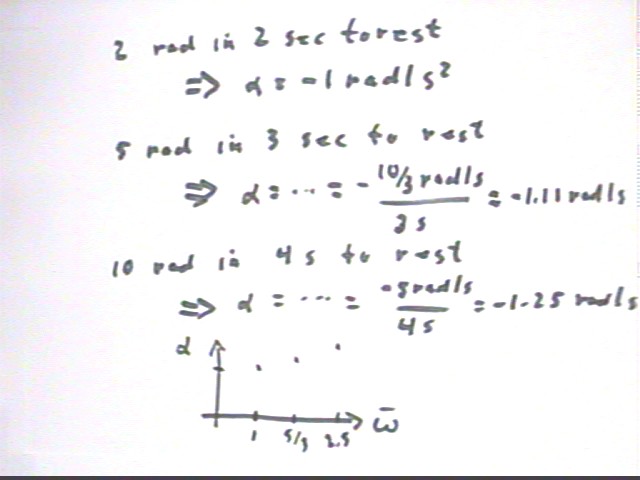 2 rad in 2 sec to rest
⇒ α = -1 rad/s²
5 rad in 3 sec to rest
⇒ α = ... = - 10/3 rad/s / 3 s = -1.11 rad/s
10 rad in 4 s to rest
⇒ α = ... = -5 rad/s / 4 s = -1.25 rad/s
α
ω̄
1 5/3 2.5